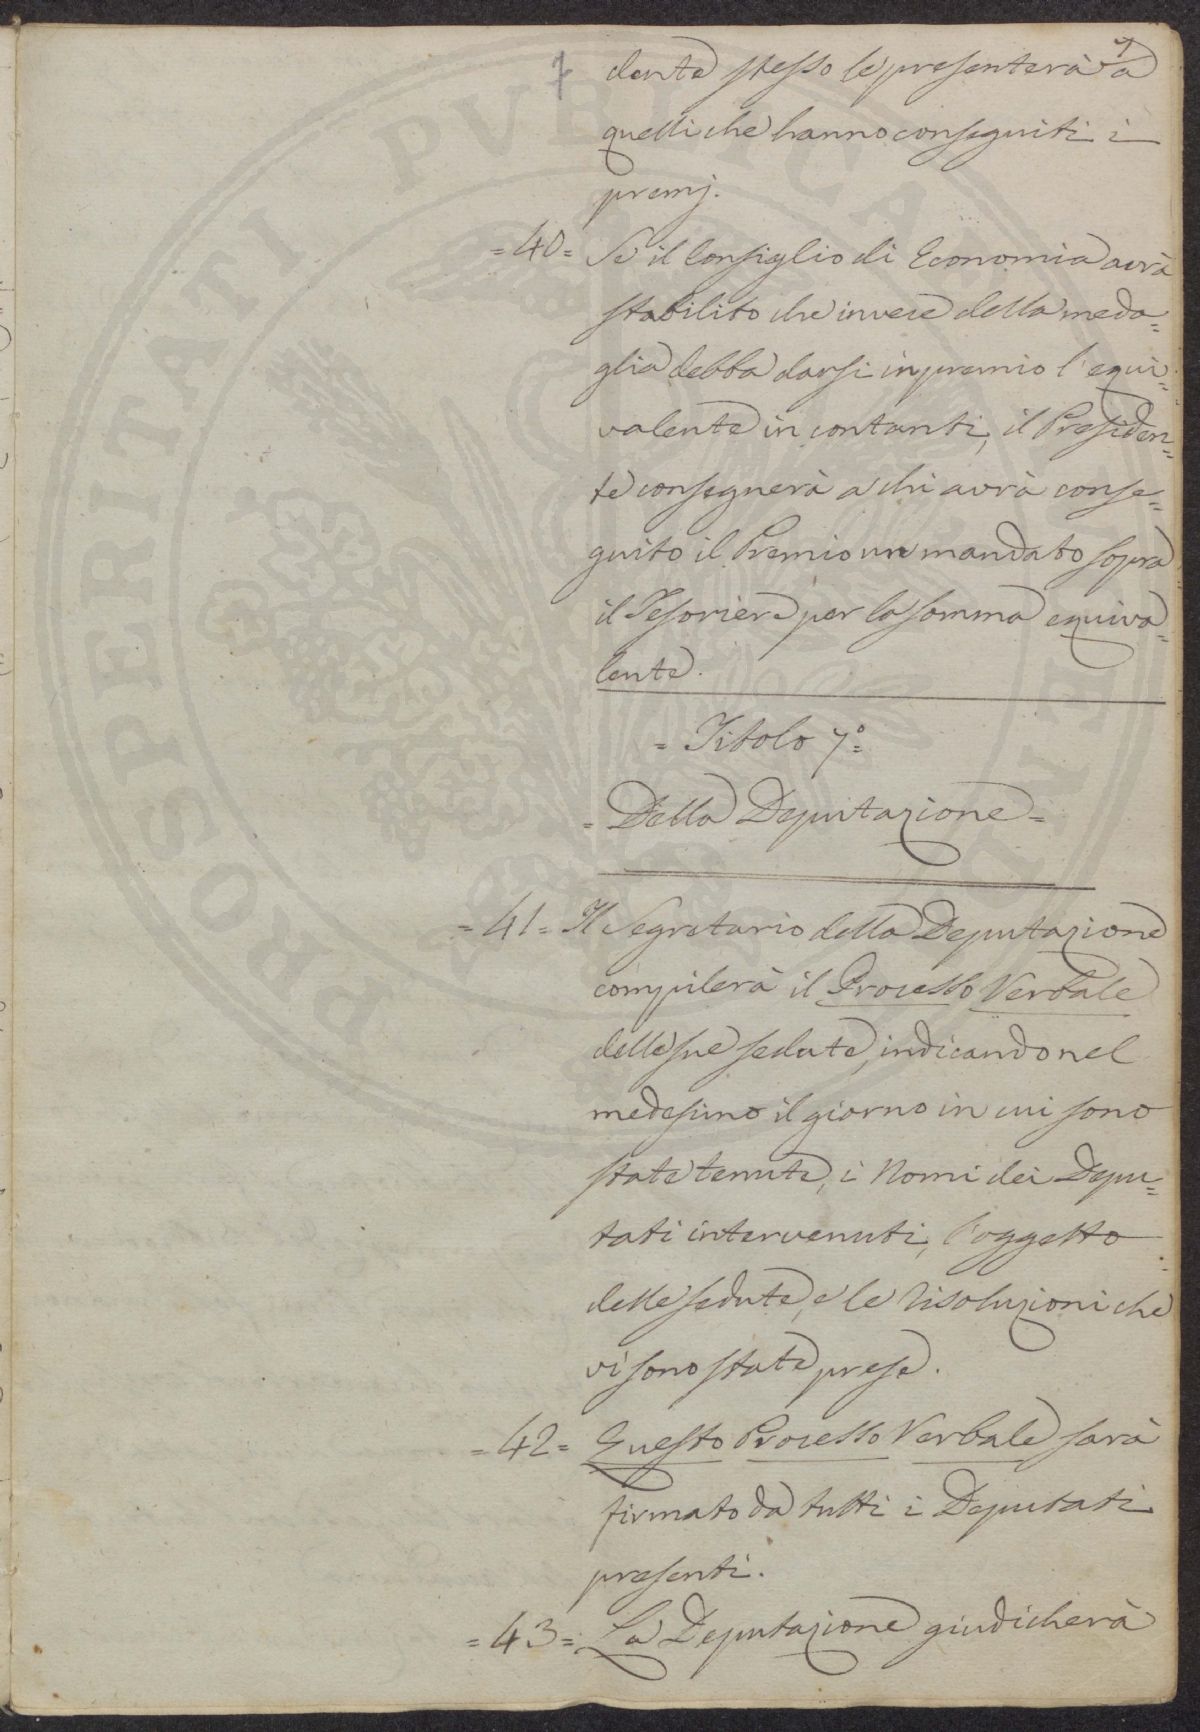 7
7
dente stesso le presenterà a
quelli che hanno conseguiti i
premj.
=40= Se il Consiglio di Economia avrà
stabilito che invece della meda=
glia debba darsi in premio l'equi=
valente in contanti, il Presiden=
te consegnerà a chi avrà conse=
guito il Premio un mandato sopra
il Tesoriere per la somma equiva=
lente.
= Titolo 7.° =
= Della Deputazione =
=41= Il Segretario della Deputazione
compilerà il Processo Verbale
delle sue sedute, indicando nel
medesimo il giorno in cui sono
state tenute, i Nomi dei Depu=
tati intervenuti, l'oggetto
delle sedute, e le risoluzioni che
vi sono state prese.
=42= Questo Processo Verbale sarà
firmato da tutti i Deputati
presenti.
=43= La Deputazione giudicherà
PROSPERITATI PVBLICAE AVGENDAE